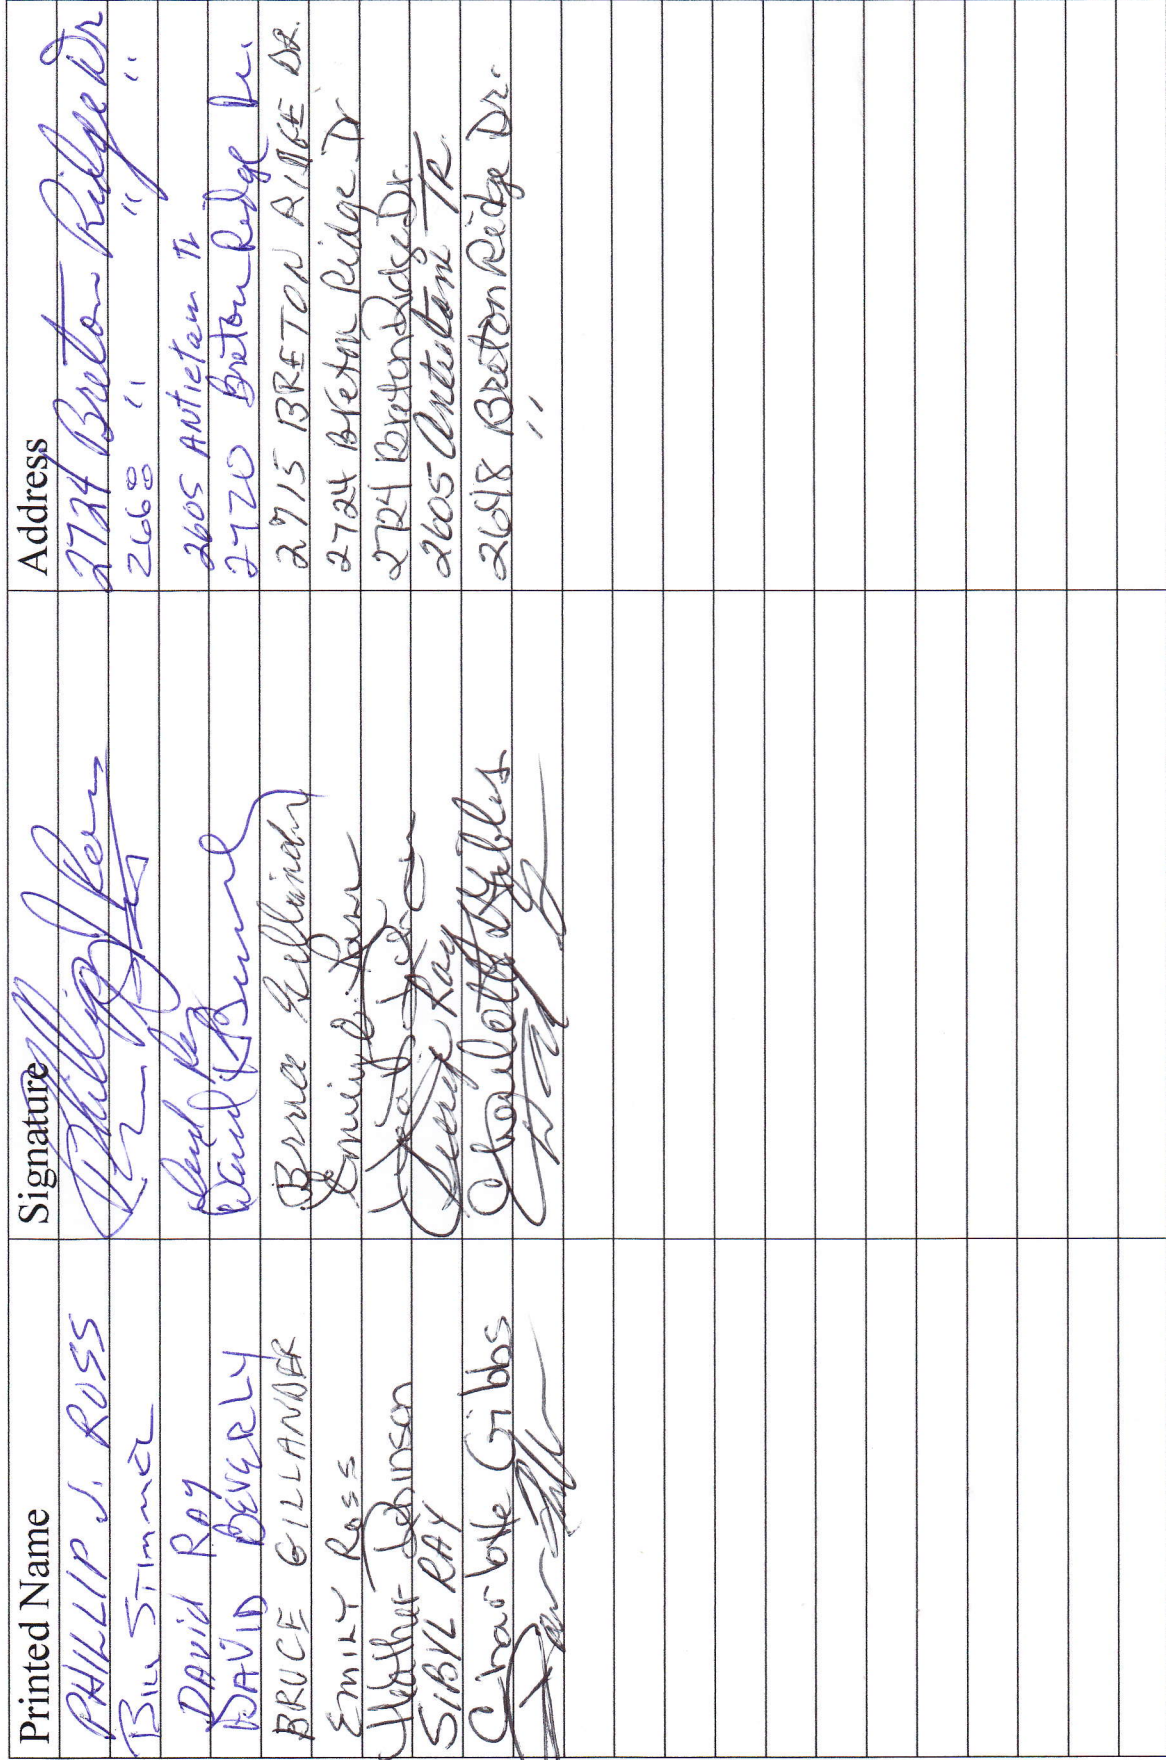 Printed Name Signature Address
PHILLIP J. ROSS Phillip J Ross 2724 Breton Ridge Dr
Bill Stimmel 2668 " " "
DAVID RAY David Ray 2605 Antietam Tr
DAVID BEVERLY David Beverly 2720 Breton Ridge Dr.
BRUCE GILLANDER Bruce Gillander 2715 BRETON RIDGE DR.
EMILY Ross Emily Ross 2724 Breton Ridge Dr
Heather Johnson 2724 Breton Ridge Dr.
SIBYL RAY Ray 2605 Antietam TR
Charlotte Gibbs Charlotte Gibbs 2698 Breton Ridge Dr.
"